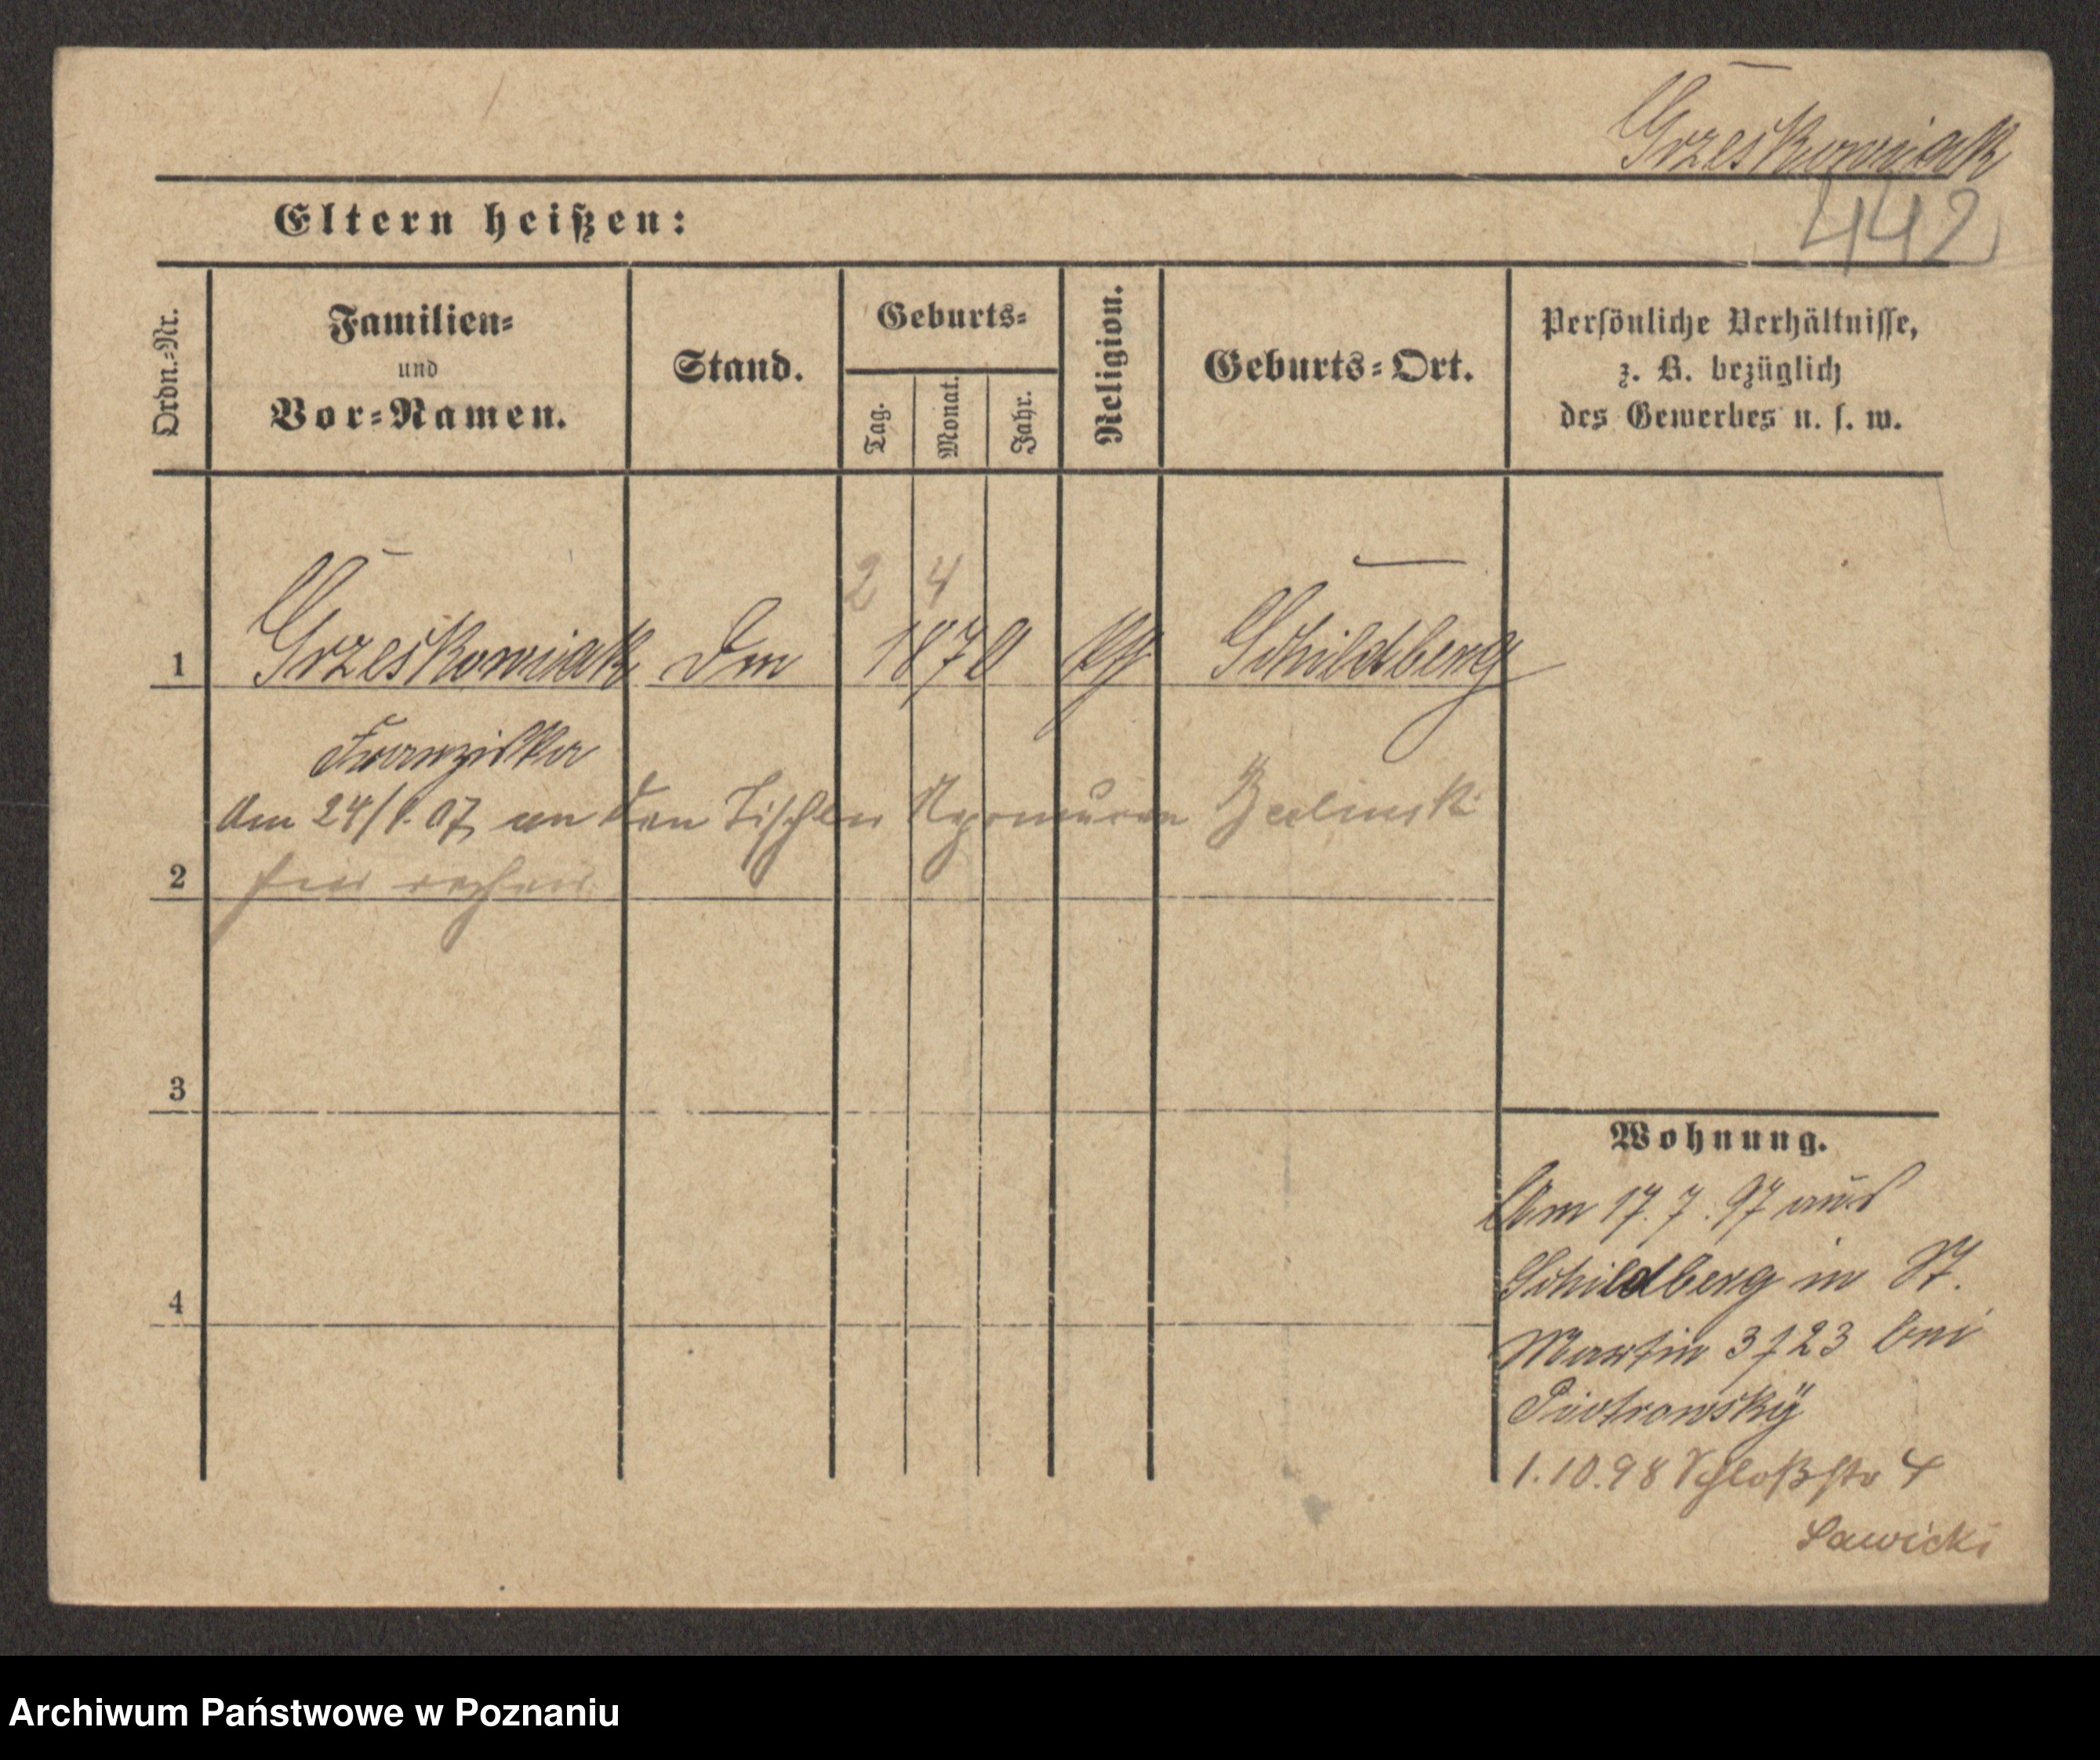 Grześkowiak
442
Eltern heißen:
Ordn.=Nr.
Familien=
und
Vor=Namen.
Stand.
Geburts=
Tag.
Monat.
Jahr.
Religion.
Geburts=Ort.
Persönliche Verhältnisse,
z. B. bezüglich
des Gewerbes u. s. w.
2 4
1 Grześkowiak 1870 Schildberg
Franziska
Am 24/ 07 an den Tischler
2
3
4
Wohnung.
Am 17.7.97 aus
Schildberg in St.
Martin 3 f 23 bei
Piotrowsky
1.10.98 Schloßstr 4
Sawicki
Archiwum Państwowe w Poznaniu